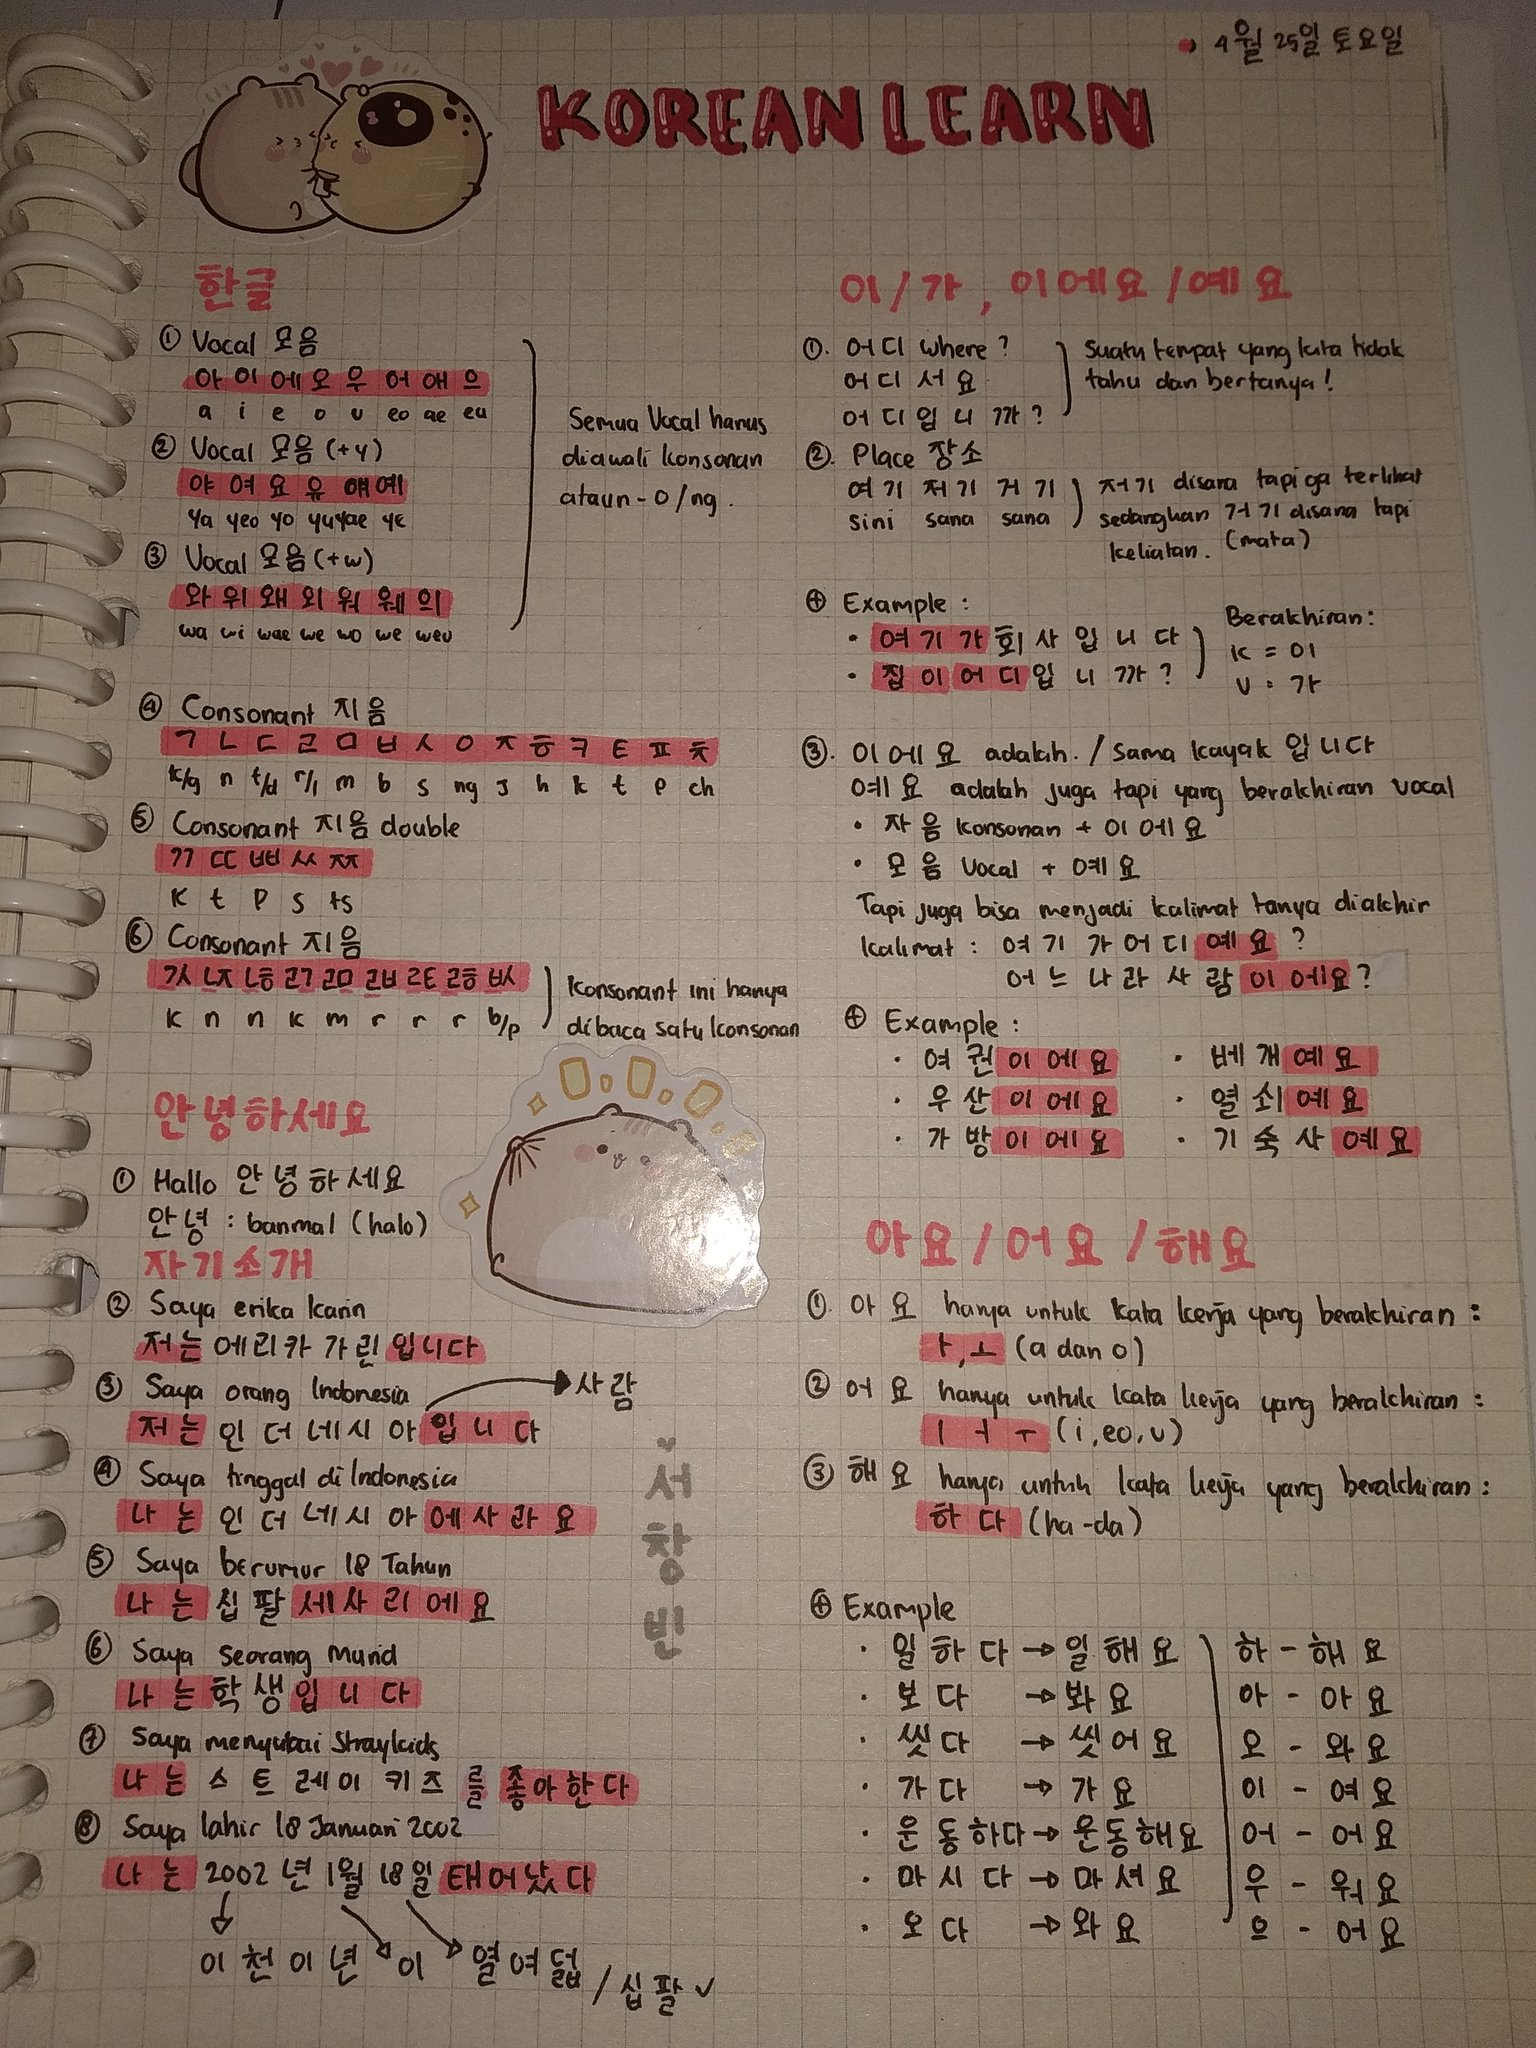 4월 25일 토요일
KOREAN LEARN
한글
① Vocal 모음
아 이 에 오 우 어 애 으
a i e o u eo ae eu
② Vocal 모음 (+y)
야 여 요 유 얘 예
ya yeo yo yu yae ye
③ Vocal 모음 (+w)
와 위 왜 외 워 웨 의
wa wi wae we wo we weu
Semua Vocal harus
diawali konsonan
ataun - O/ng.
④ Consonant 지음
ㄱ ㄴ ㄷ ㄹ ㅁ ㅂ ㅅ ㅇ ㅈ ㅎ ㅋ ㅌ ㅍ ㅊ
k/g n t/d r/l m b s ng j h k t p ch
⑤ Consonant 지음 double
ㄲ ㄸ ㅃ ㅆ ㅉ
k t p s ts
⑥ Consonant 지음
ㄳ ㄵ ㄶ ㄺ ㄻ ㄼ ㄾ ㅀ ㅄ
k n n k m r r r b/p
Konsonant ini hanya
dibaca satu konsonan
안녕하세요
① Hallo 안녕하세요
안녕 : banmal (halo)
자기소개
② Saya erika karin
저는 에리카 가린입니다
③ Saya orang Indonesia
사람
저는 인더네시아입니다
④ Saya tinggal di Indonesia
나는 인더네시아에사라요
⑤ Saya berumur 18 Tahun
나는 십팔세사리에요
⑥ Saya seorang murid
나는학생입니다
⑦ Saya menyukai Straykids
나는 스트레이키즈를 좋아한다
⑧ Saya lahir 18 Januari 2002
나는 2002년 1월 18일 태어났다
이천이년 이 열여덟 / 십팔 ✓
서창빈
이/가, 이에요/예요
①. 어디 where?
어디서요
어디입니까?
Suatu tempat yang kita tidak
tahu dan bertanya!
②. Place 장소
여기 저기 거기
sini sana sana
저기 disana tapi ga terlihat
sedangkan 거기 disana tapi
keliatan. (mata)
⊕ Example :
• 여기가 회사입니다
• 집이어디입니까?
Berakhiran:
K = 이
V = 가
③. 이에요 adalah. / sama kayak 입니다
예요 adalah juga tapi yang berakhiran vocal
• 자음 konsonan + 이에요
• 모음 Vocal + 예요
Tapi juga bisa menjadi kalimat tanya diakhir
kalimat : 여기가어디예요?
어느나라사람이에요?
⊕ Example :
• 여권이에요 • 베개예요
• 우산이에요 • 열쇠예요
• 가방이에요 • 기숙사예요
아요/어요/해요
①. 아요 hanya untuk kata kerja yang berakhiran :
ㅏ,ㅗ (a dan o)
② 어요 hanya untuk kata kerja yang berakhiran :
ㅣ ㅓ ㅜ (i, eo, u)
③ 해요 hanya untuk kata kerja yang berakhiran :
하다 (ha-da)
⊕ Example
• 일하다 → 일해요 하 - 해요
• 보다 → 봐요 아 - 아요
• 씻다 → 씻어요 오 - 와요
• 가다 → 가요 이 - 여요
• 운동하다 → 운동해요 어 - 어요
• 마시다 → 마셔요 우 - 워요
• 오다 → 와요 으 - 어요